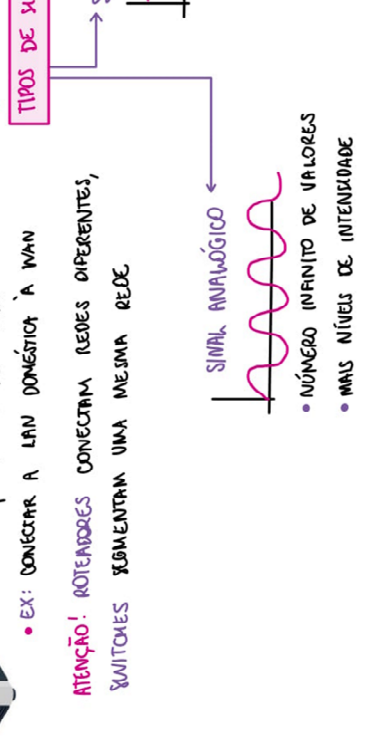 • EX: CONECTAR A LAN DOMÉSTICA À WAN
ATENÇÃO! ROTEADORES CONECTAM REDES DIFERENTES,
SWITCHES SEGMENTAM UMA MESMA REDE
TIPOS DE
SINAL ANALÓGICO
• NÚMERO INFINITO DE VALORES
• MAIS NÍVEIS DE INTENSIDADE